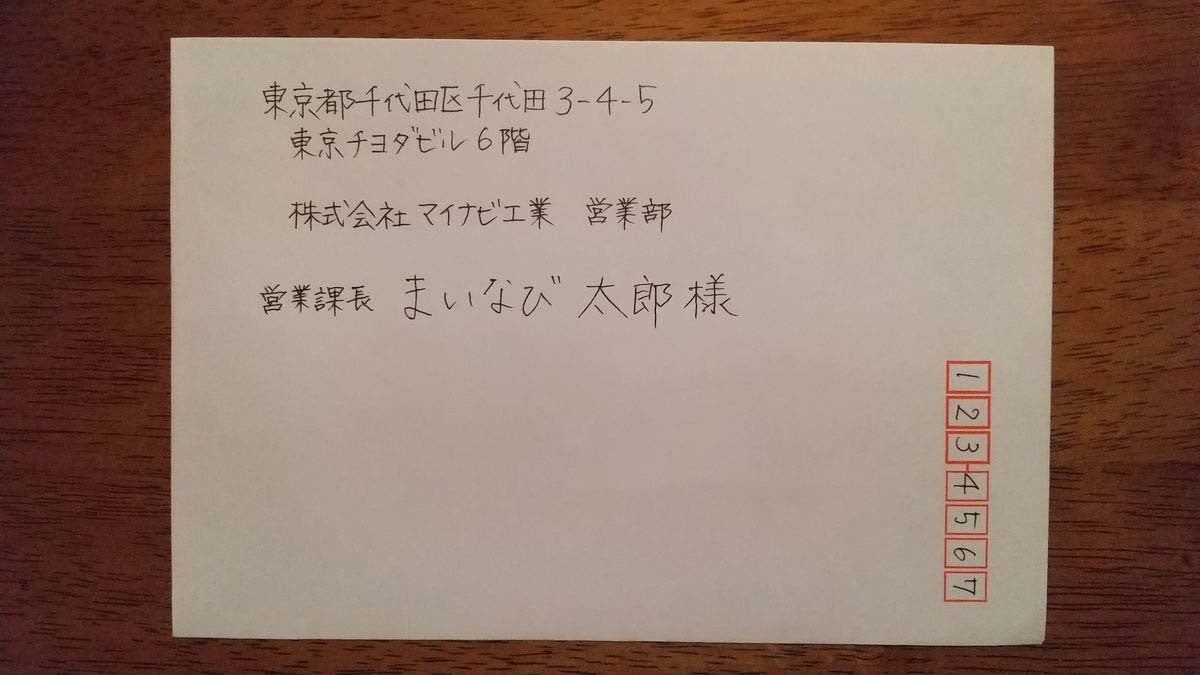 東京都千代田区千代田3-4-5
東京チヨダビル6階
株式会社マイナビ工業　営業部
営業課長　まいなび 太郎様
1234567